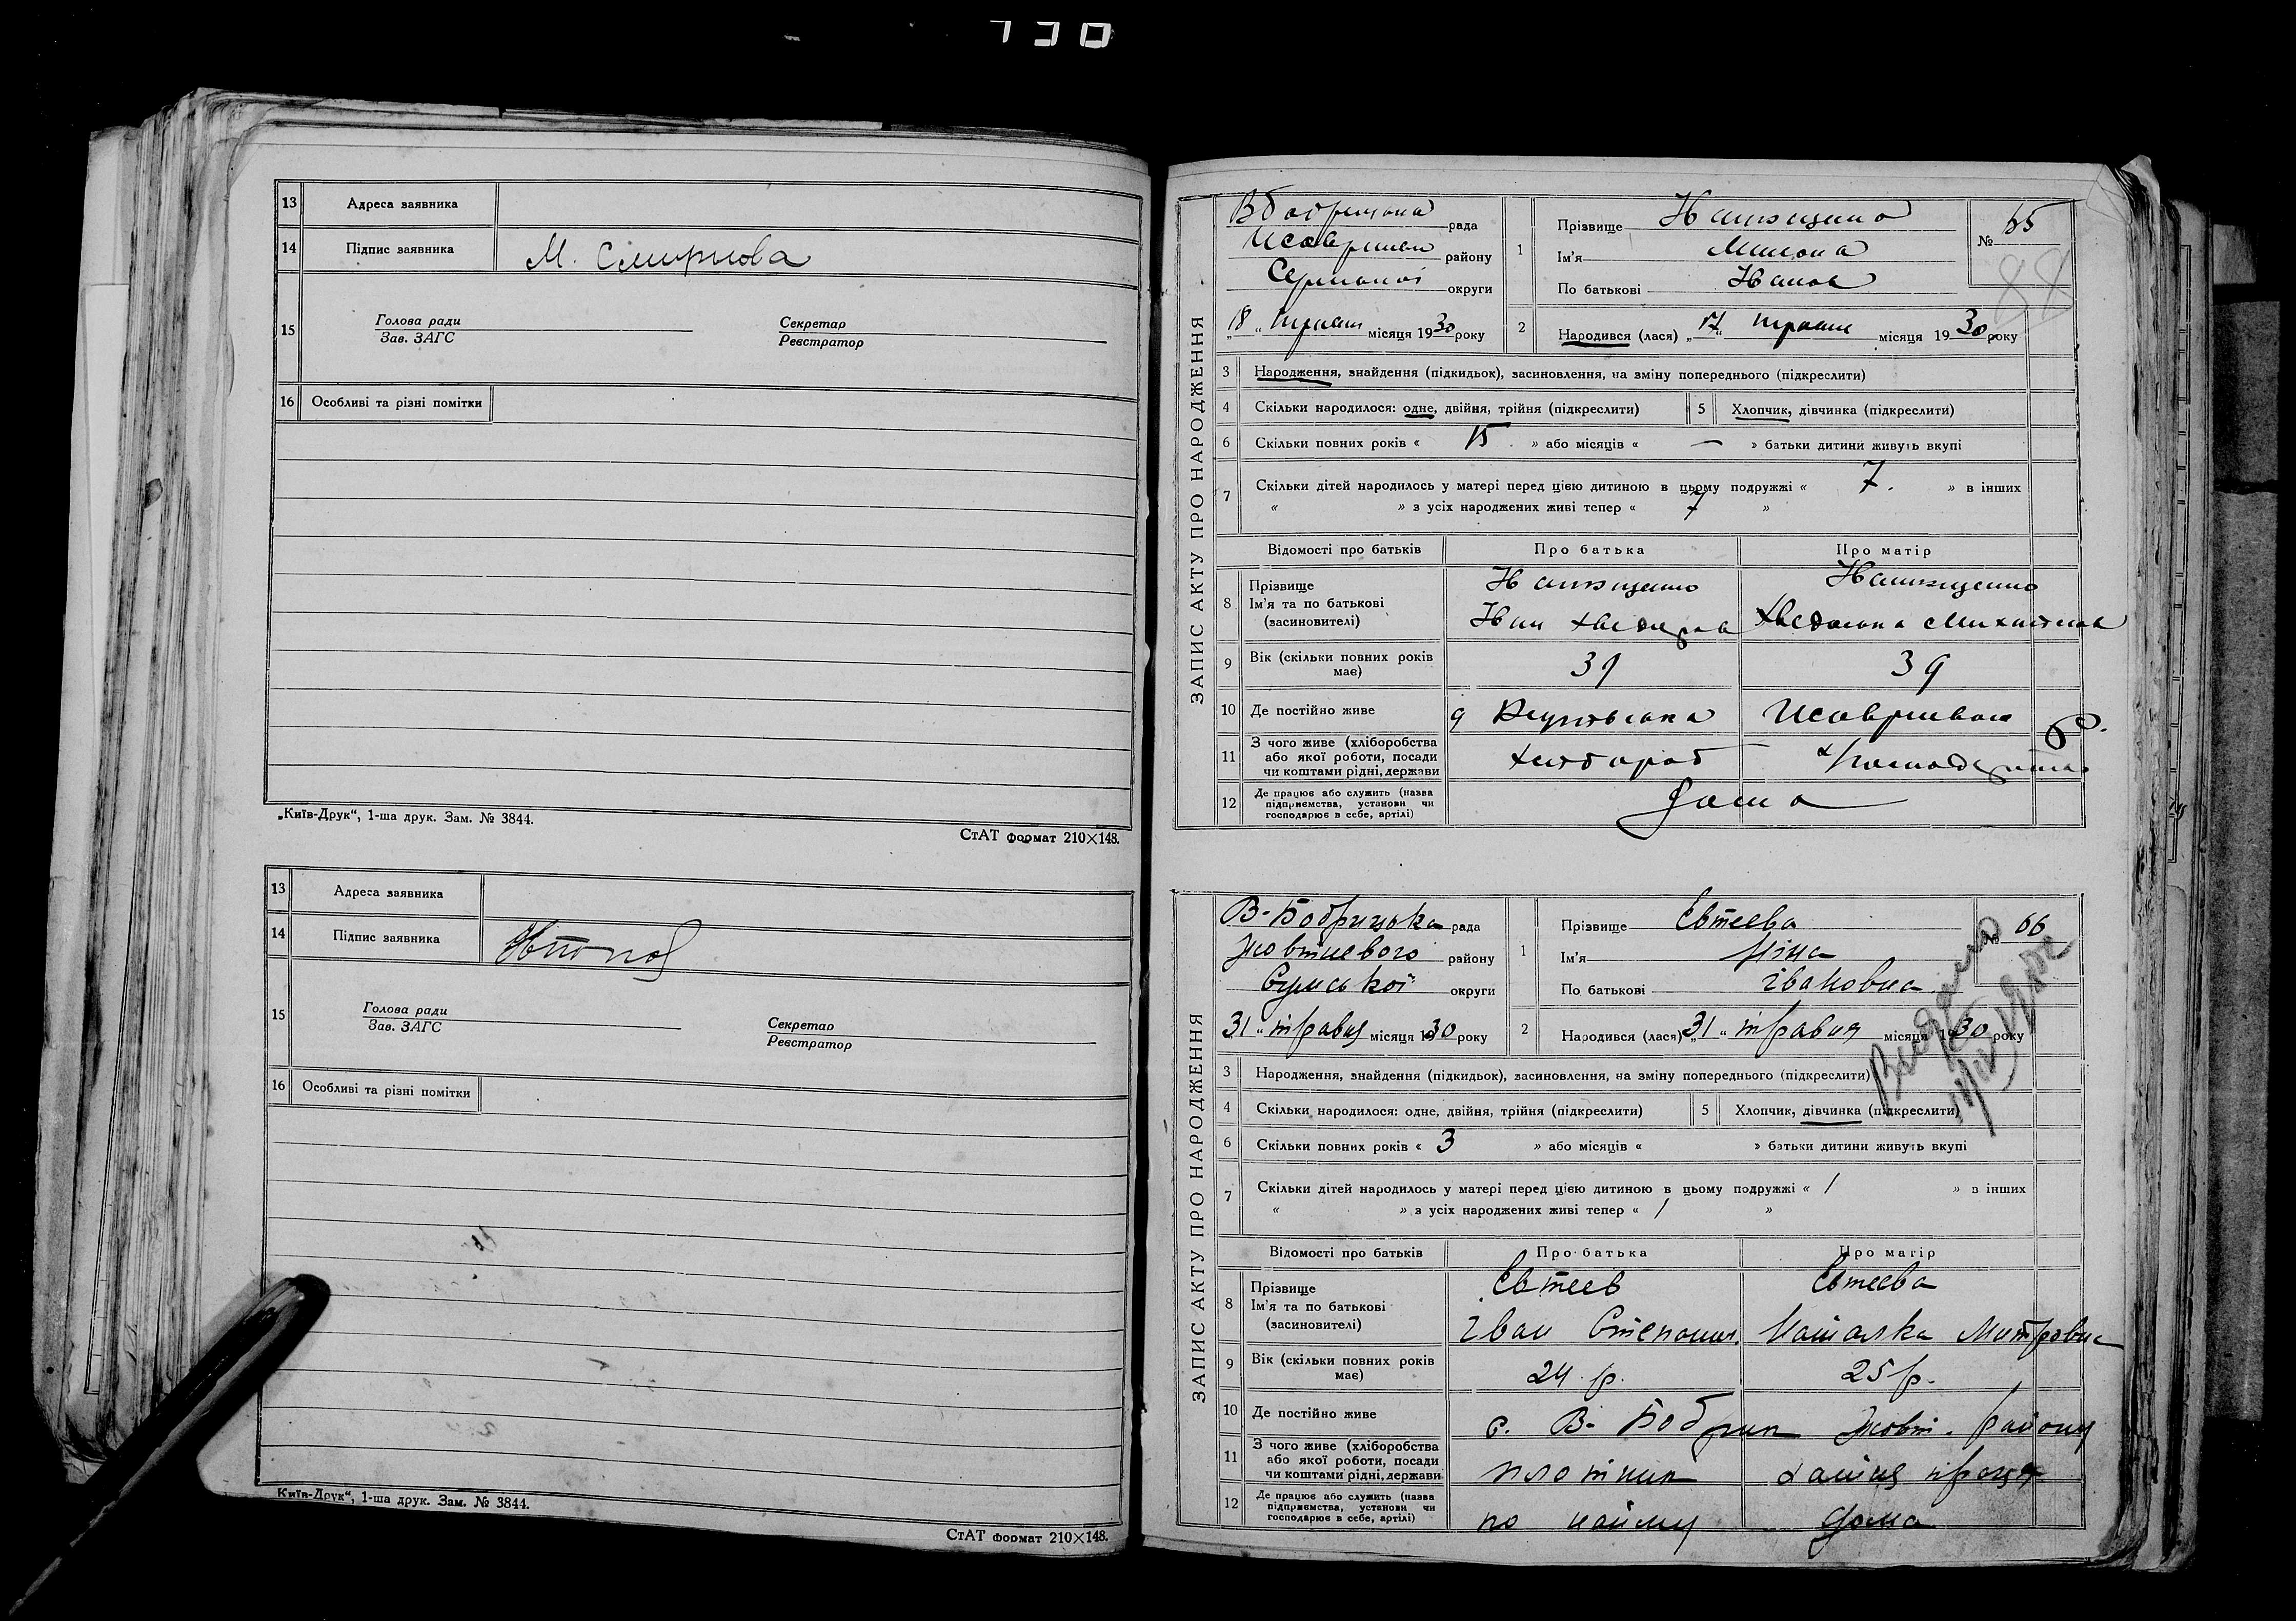 730
13 Адреса заявника
14 Підпис заявника М. Смирнова
15 Голова ради
Зав. ЗАГС
Секретар
Реєстратор
16 Особливі та різні помітки
„Київ-Друк“, 1-ша друк. Зам. № 3844.
СтАТ формат 210×148.
13 Адреса заявника
14 Підпис заявника
15 Голова ради
Зав. ЗАГС
Секретар
Реєстратор
16 Особливі та різні помітки
Київ-Друк“, 1-ша друк. Зам. № 3844.
СтАТ формат 210×148.
ЗАПИС АКТУ ПРО НАРОДЖЕННЯ
рада
району
округи
„18“ місяця 1930 року
1 Прізвище
Ім'я
По батькові Иванов
№ 65
88
2 Народився (лася) „17“ місяця 1930 року
3 Народження, знайдення (підкидьок), засиновлення, на зміну попереднього (підкреслити)
4 Скільки народилося: одне, двійня, трійня (підкреслити)
5 Хлопчик, дівчинка (підкреслити)
6 Скільки повних років « 15 » або місяців « — » батьки дитини живуть вкупі
7 Скільки дітей народилось у матері перед цією дитиною в цьому подружжі « 7. » в інших
« » з усіх народжених живі тепер « 7 »
Відомості про батьків Про батька Про матір
8 Прізвище
Ім'я та по батькові
(засновителі)
Иван
9 Вік (скільки повних років має) 39 39
10 Де постійно живе
11 З чого живе (хліборобства
або якої роботи, посади
чи коштами рідні, держави
хлібороб
12 Де працює або служить (назва
підприємства, установи чи
господарює в себе, артілі)
дома
ЗАПИС АКТУ ПРО НАРОДЖЕННЯ
В-Бобрицька рада
Жовтневого району
Сумської округи
31 „ травня місяця 1930 року
1 Прізвище Евтеева
Ім'я Ніна
По батькові Івановна
№ 66
Видано
2 Народився (лася) „31“ травня місяця 1930 року
3 Народження, знайдення (підкидьок), засиновлення, на зміну попереднього (підкреслити)
4 Скільки народилося: одне, двійня, трійня (підкреслити)
5 Хлопчик, дівчинка (підкреслити)
6 Скільки повних років « 3 » або місяців « » батьки дитини живуть вкупі
7 Скільки дітей народилось у матері перед цією дитиною в цьому подружжі « 1 » в інших
« » з усіх народжених живі тепер « 1 »
Відомості про батьків Про батька Про матір
8 Прізвище Евтеев Евтеева
Ім'я та по батькові
(засиновителі)
Іван Наталка Митровна
9 Вік (скільки повних років має) 24 р. 25 р.
10 Де постійно живе с. В-Бобрик Жовт. району
11 З чого живе (хліборобства
або якої роботи, посади
чи коштами рідні, держави
плотник
12 Де працює або служить (назва
підприємства, установи чи
господарює в себе, артілі)
по найму дома